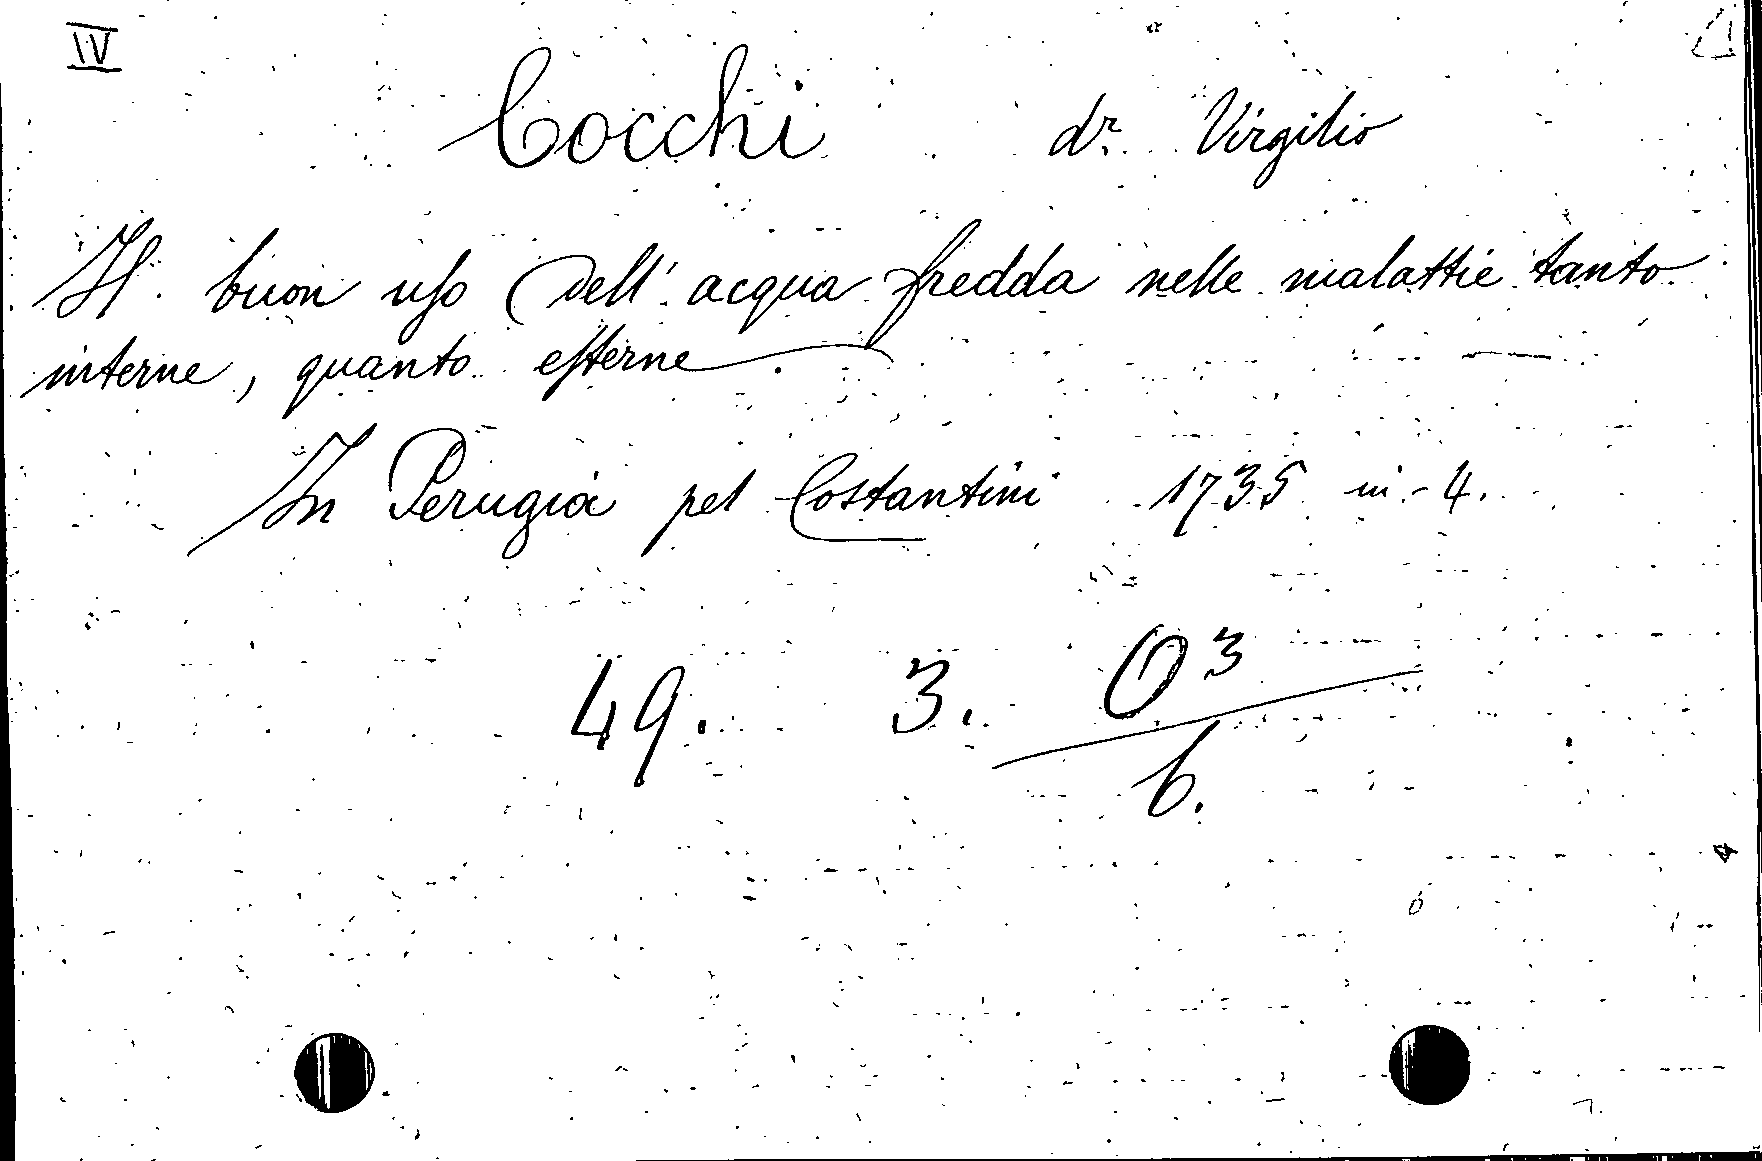 IV
Cocchi dr. Virgilio
Il buon uſo dell' acqua fredda nelle malattie tanto
interne, quanto eſterne.
In Perugia pel Costantini 1735 in-4.
49. 3. O³
b.